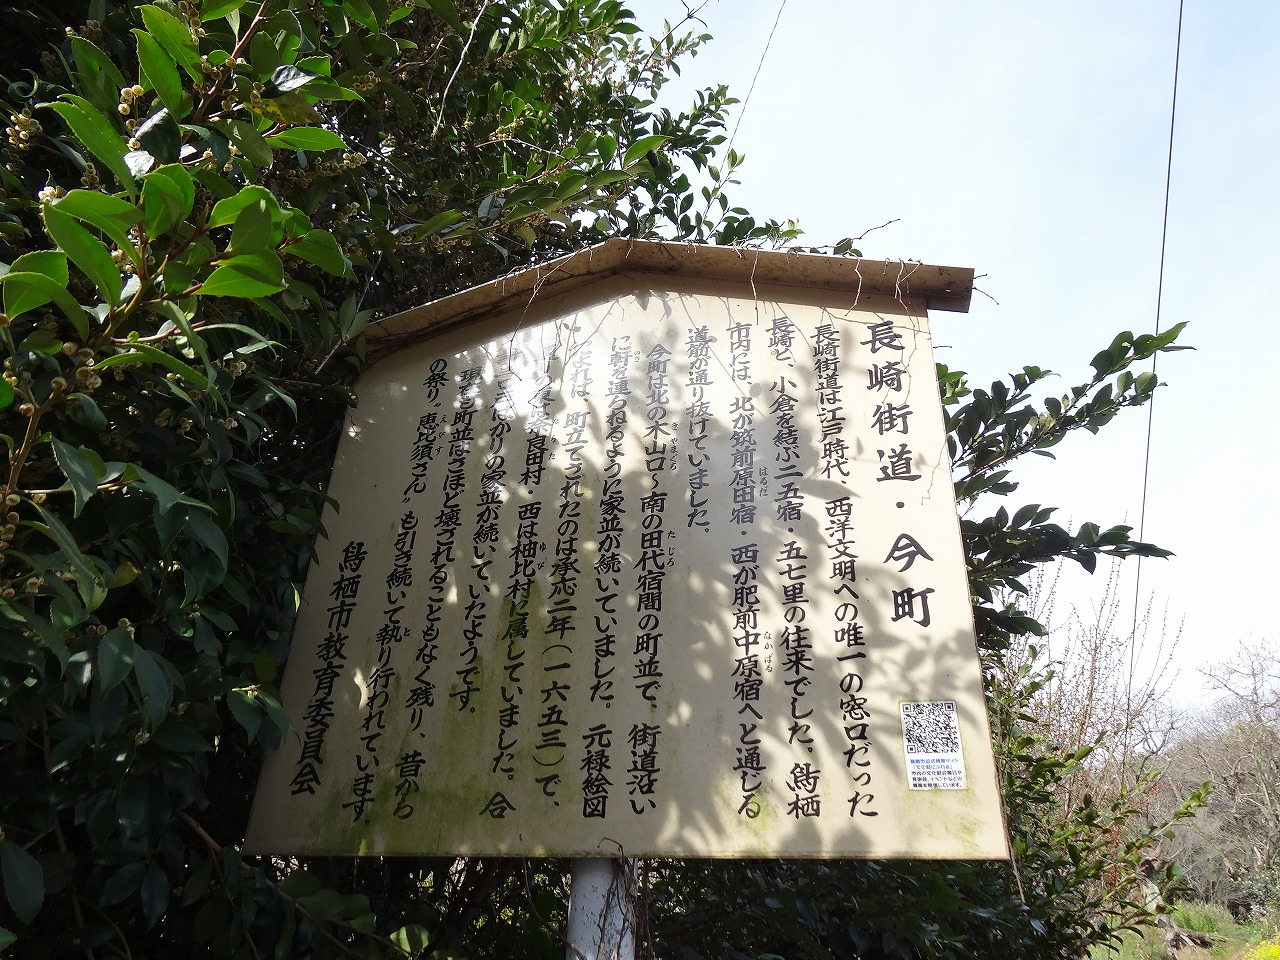 長崎街道・今町
長崎街道は江戸時代、西洋文明への唯一の窓口だった
長崎と、小倉を結ぶ二五宿・五七里の往来でした。鳥栖
市内には、北が筑前原田宿・西が肥前中原宿へと通じる
はるだ
なかばる
道筋が通り抜けていました。
今町は北の木山口〜南の田代宿間の町並で、街道沿い
きやまぐち
たじろ
に軒を連らねるように家並が続いていました。元禄絵図
のき
町立てされたのは承応二年（一六五三）で、
良田村・西は柚比村に属していました。合
ゆび
ばかりの家並が続いていたようです。
現在も町並はさほど壊されることもなく残り、昔から
の祭り〝恵比須さん〟も引き続いて執り行われています。
えびす
と
鳥栖市教育委員会